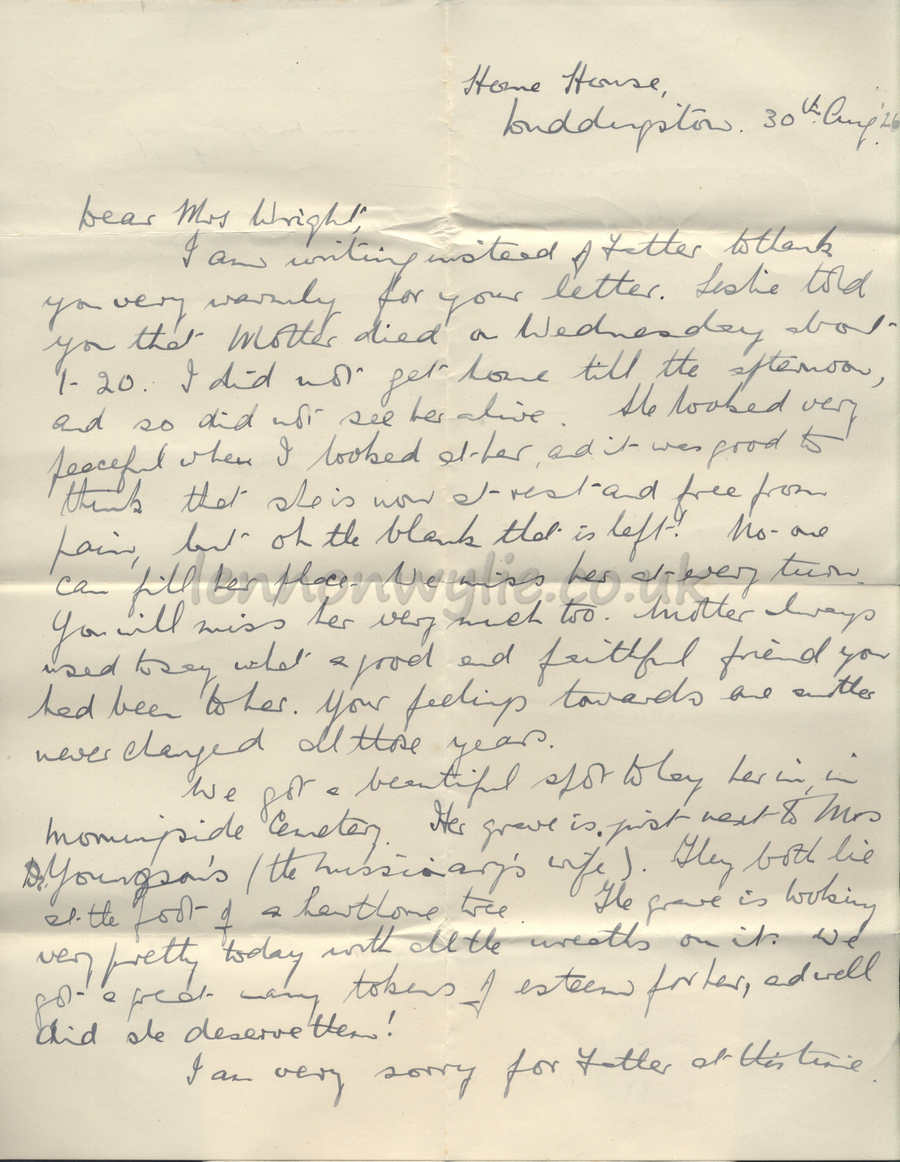 Home House,
Luddingston. 30th Aug. '26
Dear Mrs Wright,
I am writing instead of Father to thank
you very warmly for your letter. Leslie told
you that Mother died on Wednesday about
1-20. I did not get home till the afternoon,
and so did not see her alive. She looked very
peaceful when I looked at her, and it was good to
think that she is now at rest and free from
pain, but oh the blank that is left! No-one
can fill her place. We miss her at every turn.
You will miss her very much too. Mother always
used to say what a good and faithful friend you
had been to her. Your feelings towards one another
never changed all those years.
We got a beautiful spot to lay her in, in
Morningside Cemetery. Her grave is just next to Mrs
Dr. Youngson's (the missionary's wife). They both lie
at the foot of a hawthorne tree. The grave is looking
very pretty today with all the wreaths on it. We
got a great many tokens of esteem for her, and well
did she deserve them!
I am very sorry for Father at this time.
lennonwylie.co.uk